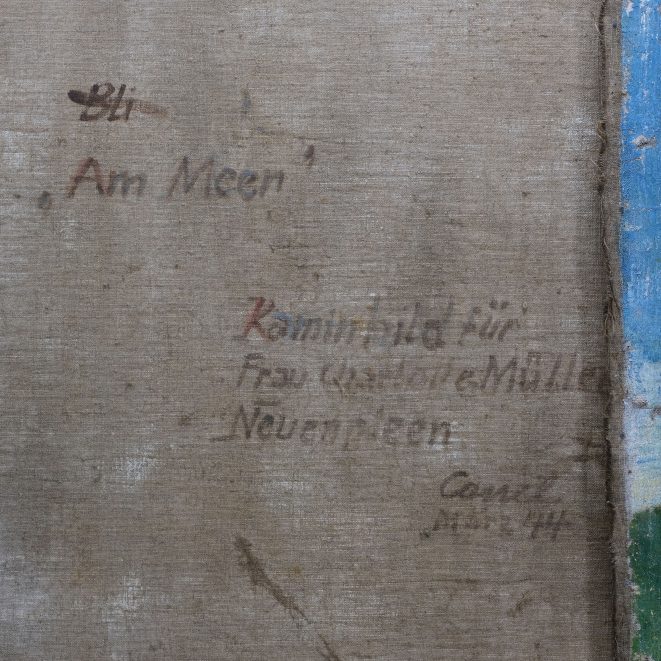 Bli
„Am Meer"
Kaminbild für
Frau Charlotte Müller
Neuenpleen
März 44